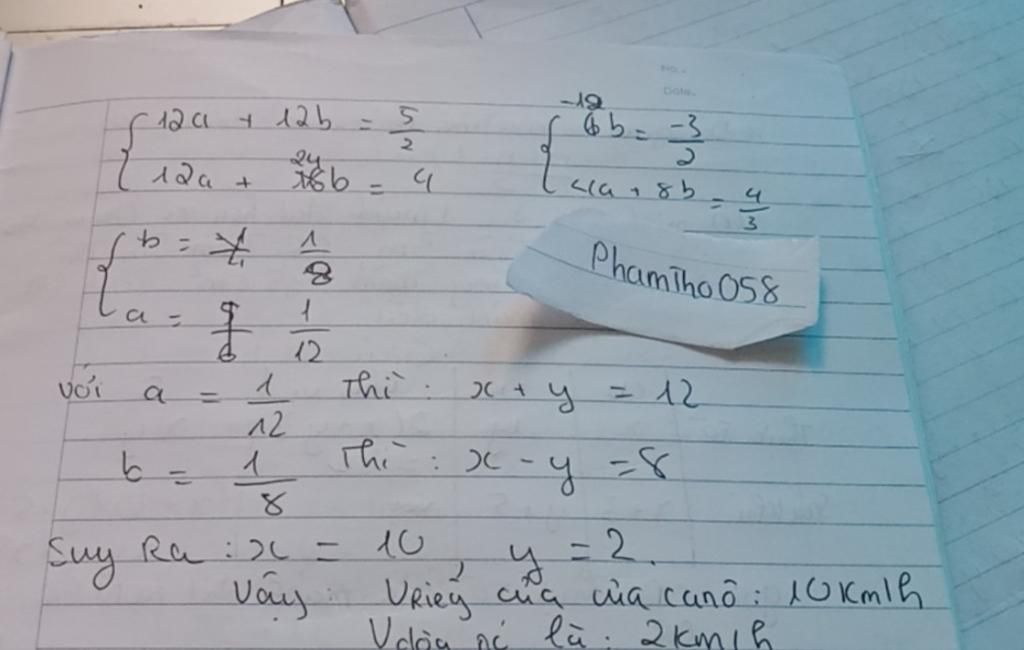 No.
Date.
{ 12a + 12b = 5/2
12a + 24b = 4
{ -12b = -3/2
4a + 8b = 4/3
{ b = 1/8
a = 1/12
Phamtho058
với a = 1/12 Thì : x + y = 12
b = 1/8 Thì : x - y = 8
Suy Ra : x = 10, y = 2.
Vậy: Vriêng của của canô : 10km/h
Vdòng là : 2km/h